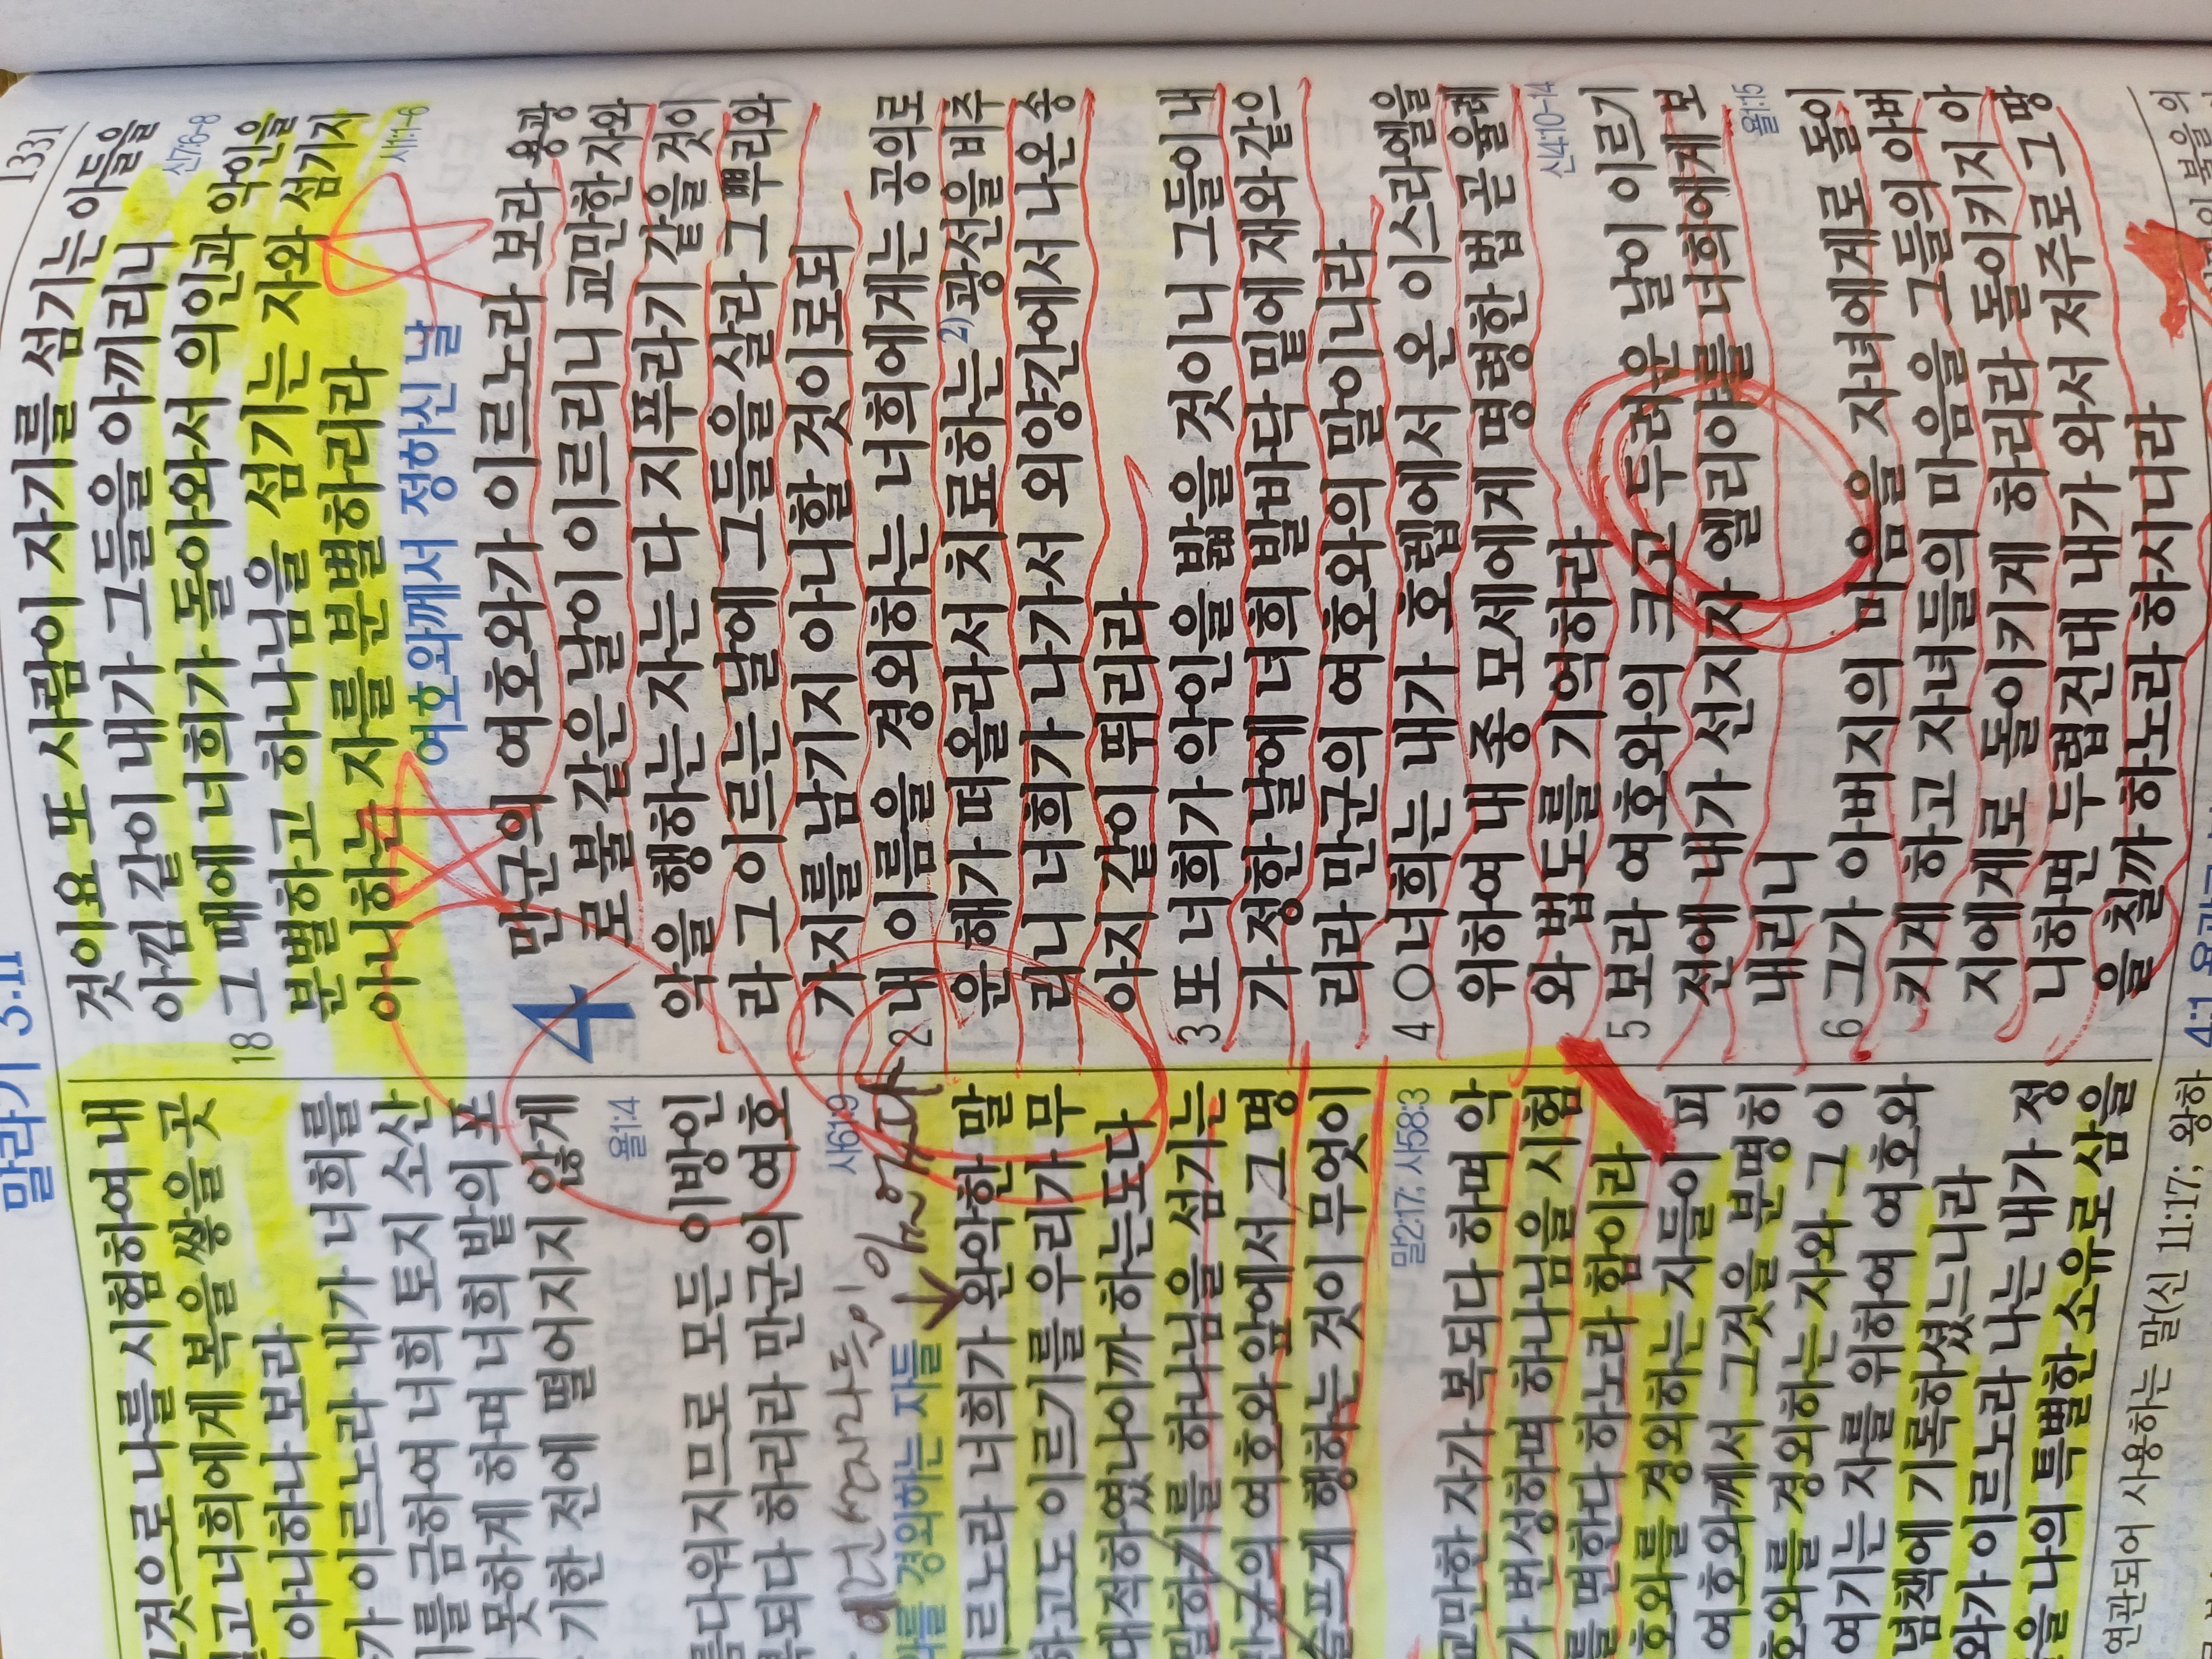 말라기 3:11
1331
것으로 나를 시험하여 내
고 너희에게 복을 쌓을 곳
아니하나 보라
가 이르노라 내가 너희를
를 금하여 너희 토지 소산
못하게 하며 너희 밭의 포
기한 전에 떨어지지 않게
욜1:4
름다워지므로 모든 이방인
복되다 하리라 만군의 여호
사61:9
이런 성도들이 있는가
와를 경외하는 자들
이르노라 너희가 완악한 말
하고도 이르기를 우리가 무
대적하였나이까 하는도다
말하기를 하나님을 섬기는
만군의 여호와 앞에서 그 명
슬프게 행하는 것이 무엇이
말2:17; 사58:3
교만한 자가 복되다 하며 악
가 번성하며 하나님을 시험
를 면한다 하노라 함이라
호와를 경외하는 자들이 피
여호와께서 그것을 분명히
호와를 경외하는 자와 그 이
여기는 자를 위하여 여호와
념책에 기록하셨느니라
와가 이르노라 나는 내가 정
을 나의 특별한 소유로 삼을
것이요 또 사람이 자기를 섬기는 아들을
아낌 같이 내가 그들을 아끼리니
신7:6-8
18 그 때에 너희가 돌아와서 의인과 악인을
분별하고 하나님을 섬기는 자와 섬기지
아니하는 자를 분별하리라
시1:1-6
여호와께서 정하신 날
4 만군의 여호와가 이르노라 보라 용광
로 불 같은 날이 이르리니 교만한 자와
악을 행하는 자는 다 지푸라기 같을 것이
라 그 이르는 날에 그들을 살라 그 뿌리와
가지를 남기지 아니할 것이로되
2 내 이름을 경외하는 너희에게는 공의로
운 해가 떠올라서 치료하는 2)광선을 비추
리니 너희가 나가서 외양간에서 나온 송
아지 같이 뛰리라
3 또 너희가 악인을 밟을 것이니 그들이 내
가 정한 날에 너희 발바닥 밑에 재와 같으
리라 만군의 여호와의 말이니라
4 ○너희는 내가 호렙에서 온 이스라엘을
위하여 내 종 모세에게 명령한 법 곧 율례
와 법도를 기억하라
신4:10-14
5 보라 여호와의 크고 두려운 날이 이르기
전에 내가 선지자 엘리야를 너희에게 보
내리니
욜1:15
6 그가 아버지의 마음을 자녀에게로 돌이
키게 하고 자녀들의 마음을 그들의 아버
지에게로 돌이키게 하리라 돌이키지 아
니하면 두렵건대 내가 와서 저주로 그 땅
을 칠까 하노라 하시니라
연관되어 사용하는 말(신 11:17; 왕하
4:1
불을의